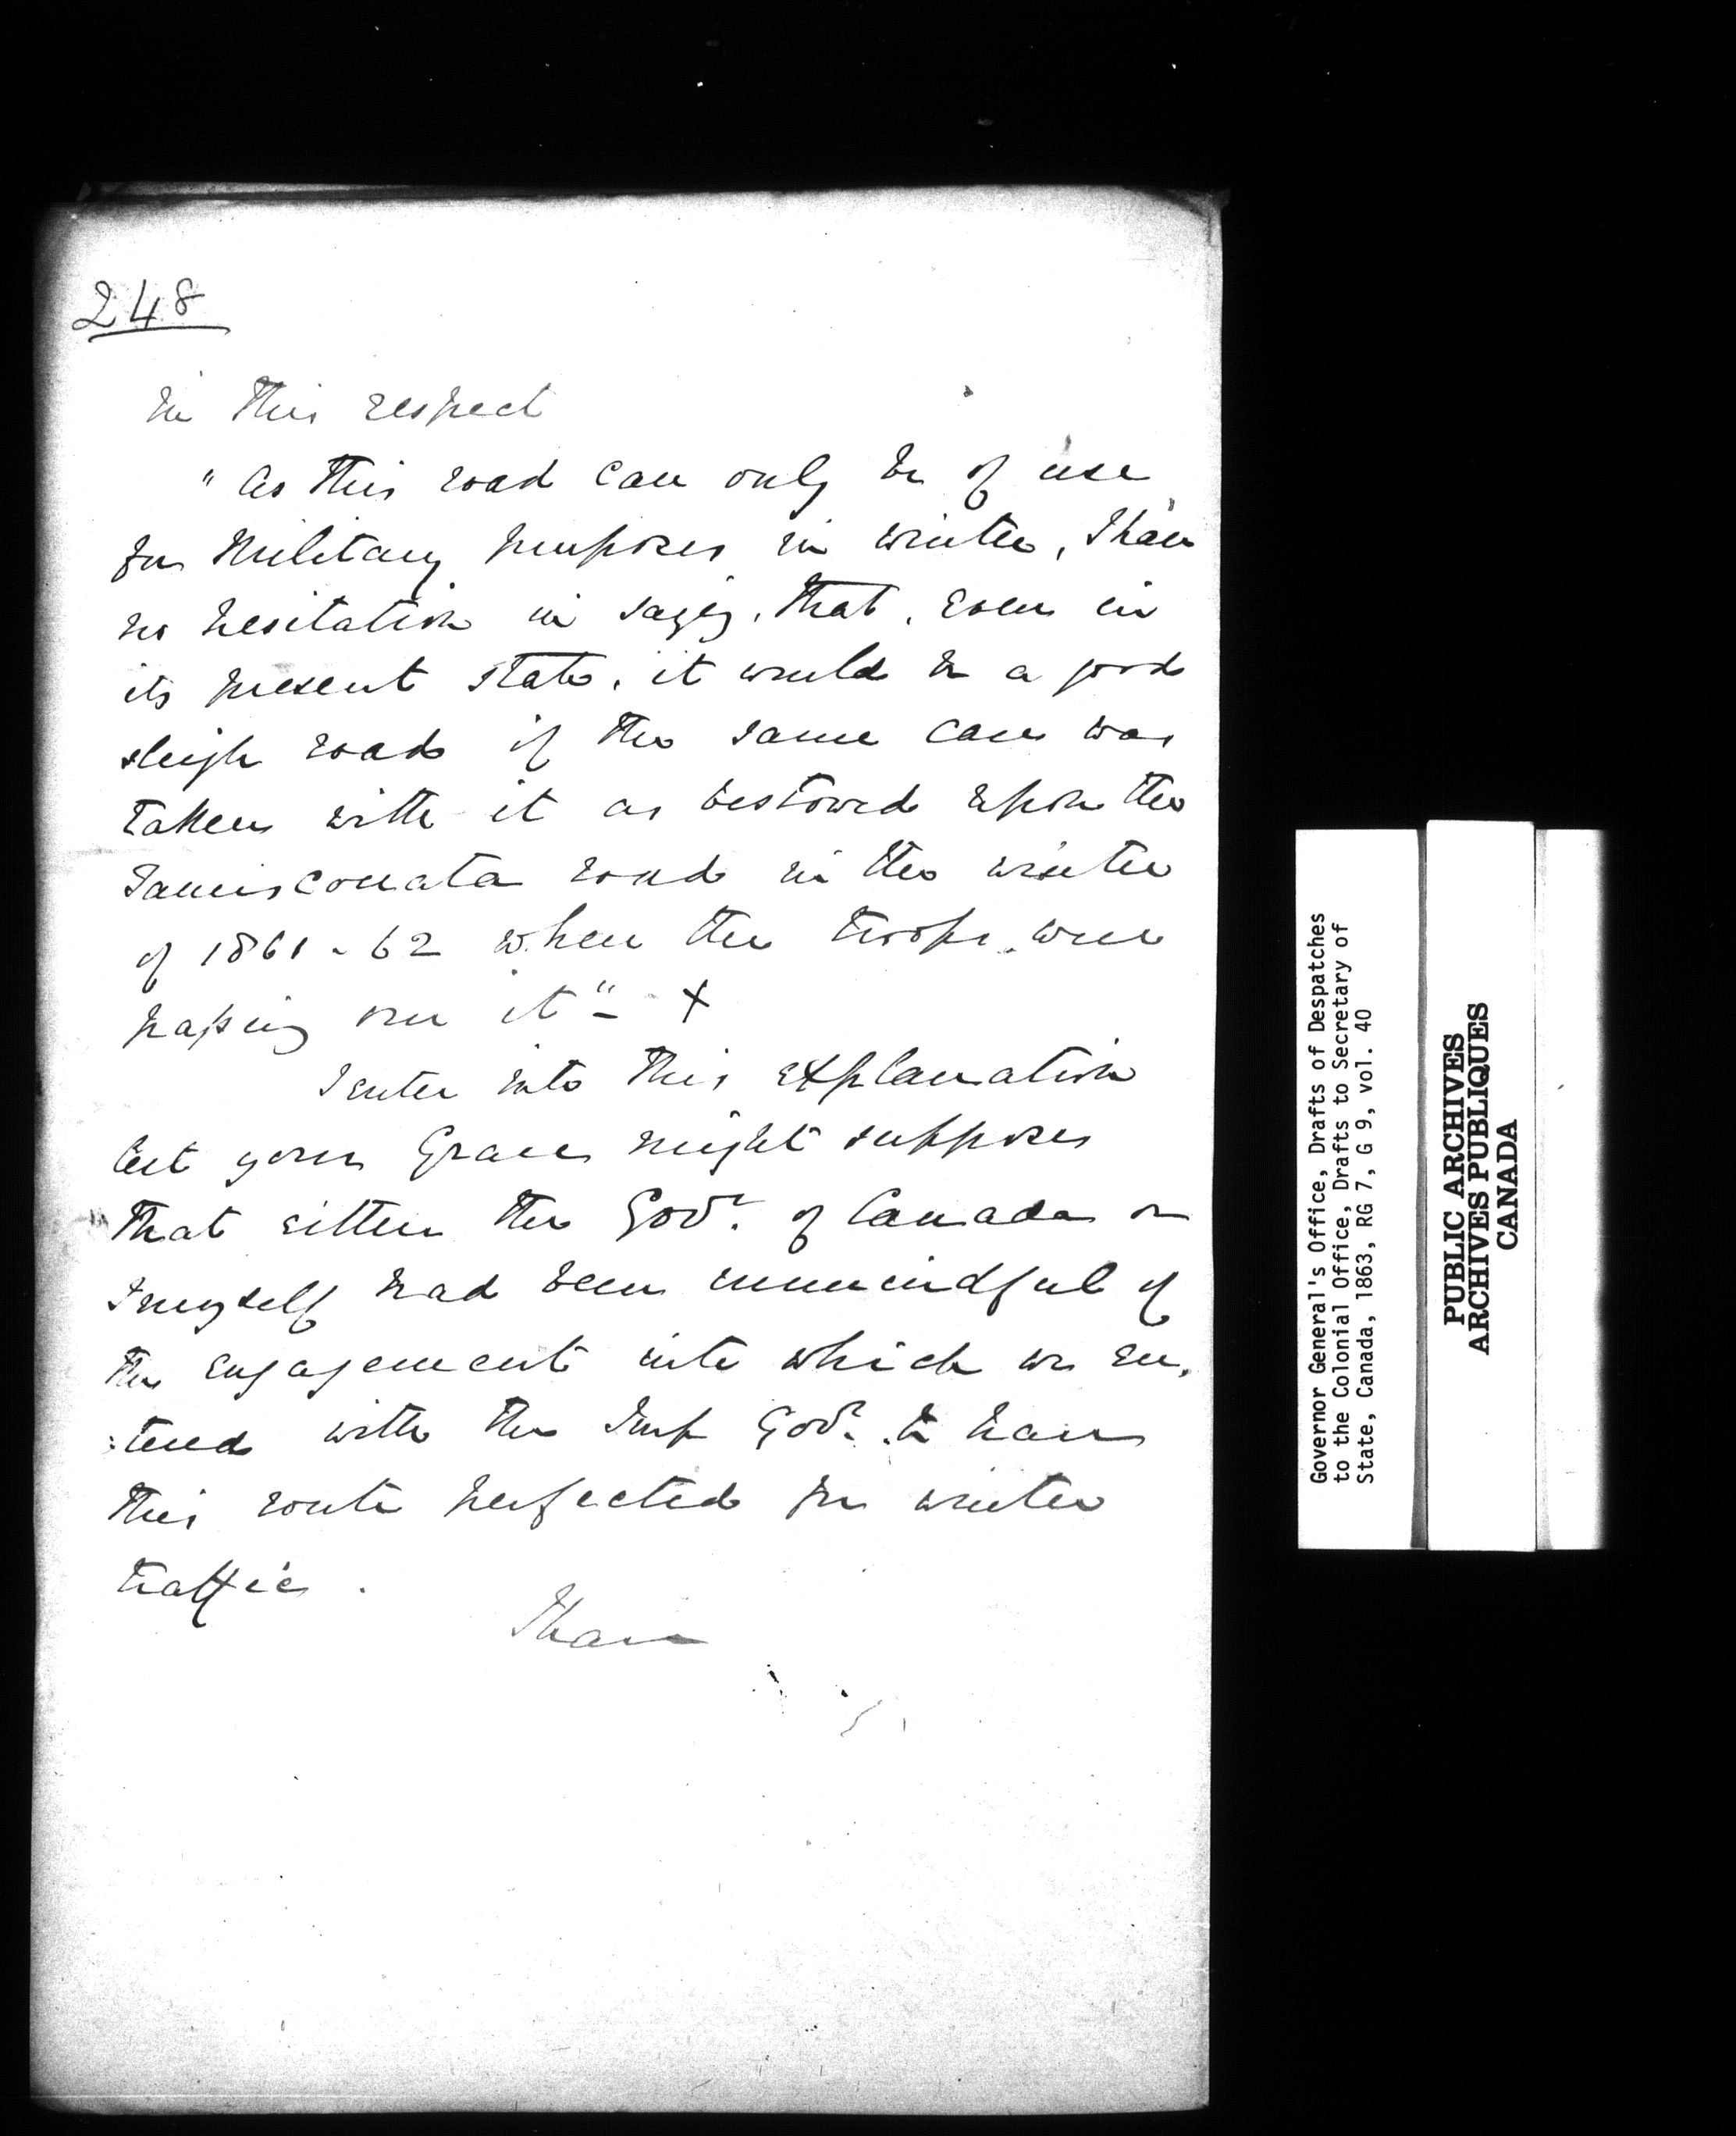 248
in this respect
" As this road can only be of use
for Military purposes in winter, I have
no hesitation in saying, that, even in
its present state, it would be a good
sleigh road if the same care was
taken with it as bestowed upon the
Tamisconata road in the winter
of 1861-62 when the troops were
passing over it" - X
I enter into this explanation
lest your Grace might suppose
that either the Govt. of Canada or
I myself had been unmindful of
the engagement into which we en-
:tered with the Imp Govt. to have
this route perfected for winter
traffic.
I have
Governor General's Office, Drafts of Despatches
to the Colonial Office, Drafts to Secretary of
State, Canada, 1863, RG 7, G 9, vol. 40
PUBLIC ARCHIVES
ARCHIVES PUBLIQUES
CANADA